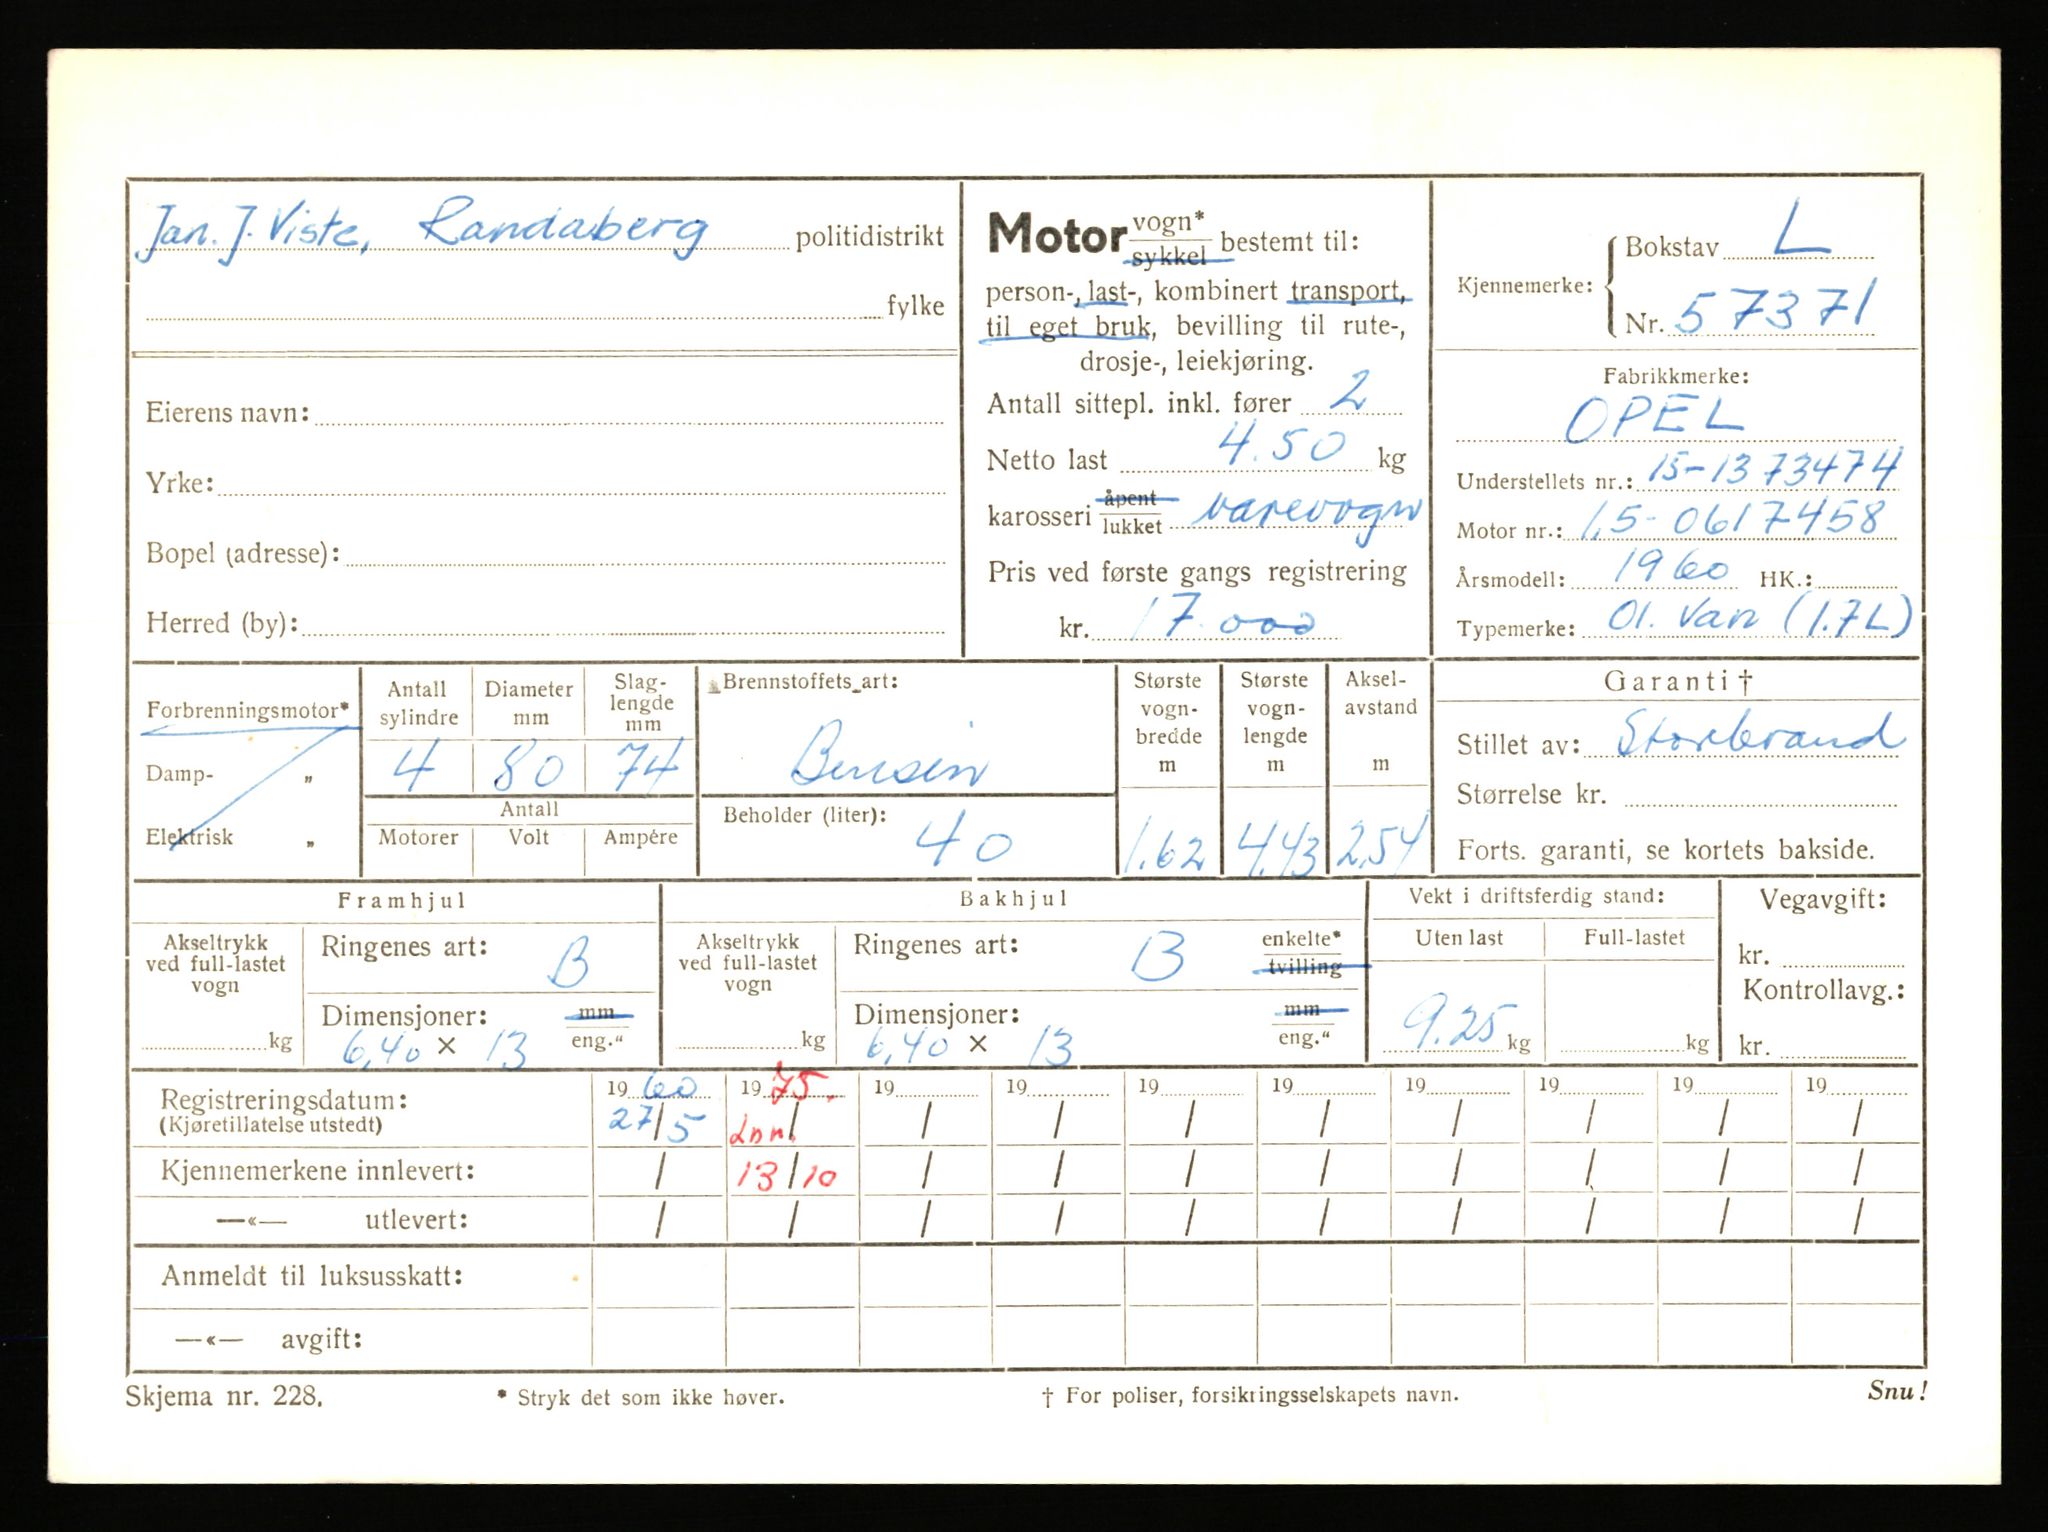 Jan. J. Viste, Randaberg politidistrikt
fylke
Eierens navn:
Yrke:
Bopel (adresse):
Herred (by):
Motor vogn* sykkel bestemt til:
person-, last-, kombinert transport,
til eget bruk, bevilling til rute-,
drosje-, leiekjøring.
Antall sittepl. inkl. fører 2
Netto last 4.50 kg
karosseri åpent lukket varevogn
Pris ved første gangs registrering
kr. 17.000
Kjennemerke: Bokstav L
Nr. 57371
Fabrikkmerke:
OPEL
Understellets nr.: 15-1373474
Motor nr.: 1,5-0617458
Årsmodell: 1960 HK.:
Typemerke: Ol. Van (1.7L)
Forbrenningsmotor*
Damp- „
Elektrisk „
Antall sylindre
4
Diameter mm
80
Slag-lengde mm
74
Antall
Motorer Volt Ampére
Brennstoffets art:
Bensin
Beholder (liter):
40
Største vogn-bredde m
1.62
Største vogn-lengde m
4,43
Aksel-avstand m
2,54
Garanti †
Stillet av: Storebrand
Størrelse kr.
Forts. garanti, se kortets bakside.
Framhjul
Akseltrykk ved full-lastet vogn
kg
Ringenes art: B
Dimensjoner: mm eng.“
6,40 × 13
Bakhjul
Akseltrykk ved full-lastet vogn
kg
Ringenes art: B enkelte* tvilling
Dimensjoner: mm eng.“
6,40 × 13
Vekt i driftsferdig stand:
Uten last Full-lastet
9.25 kg kg
Vegavgift:
kr.
Kontrollavg.:
kr.
Registreringsdatum: 19 60 19 75. 19 19 19 19 19 19 19 19
(Kjøretillatelse utstedt) 27/5 Inn. / / / / / / / / /
Kjennemerkene innlevert: / 13/10 / / / / / / / /
—«— utlevert: / / / / / / / / / /
Anmeldt til luksusskatt:
—«— avgift:
Skjema nr. 228. * Stryk det som ikke høver. † For poliser, forsikringsselskapets navn. Snu!